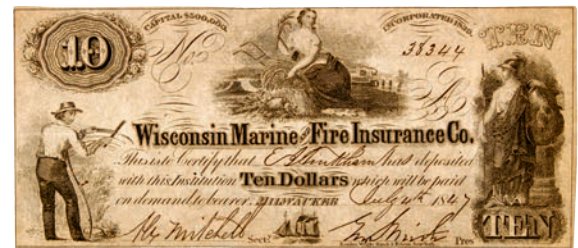 CAPITAL $500,000. INCORPORATED 1839.
10 No. 38344 TEN
A
Wisconsin Marine and Fire Insurance Co.
This is to Certify that has deposited
with this Institution Ten Dollars which will be paid
on demand to bearer. MILWAUKEE July 4th 1847
Alex Mitchell Sect. Geo Smith Pres
TEN